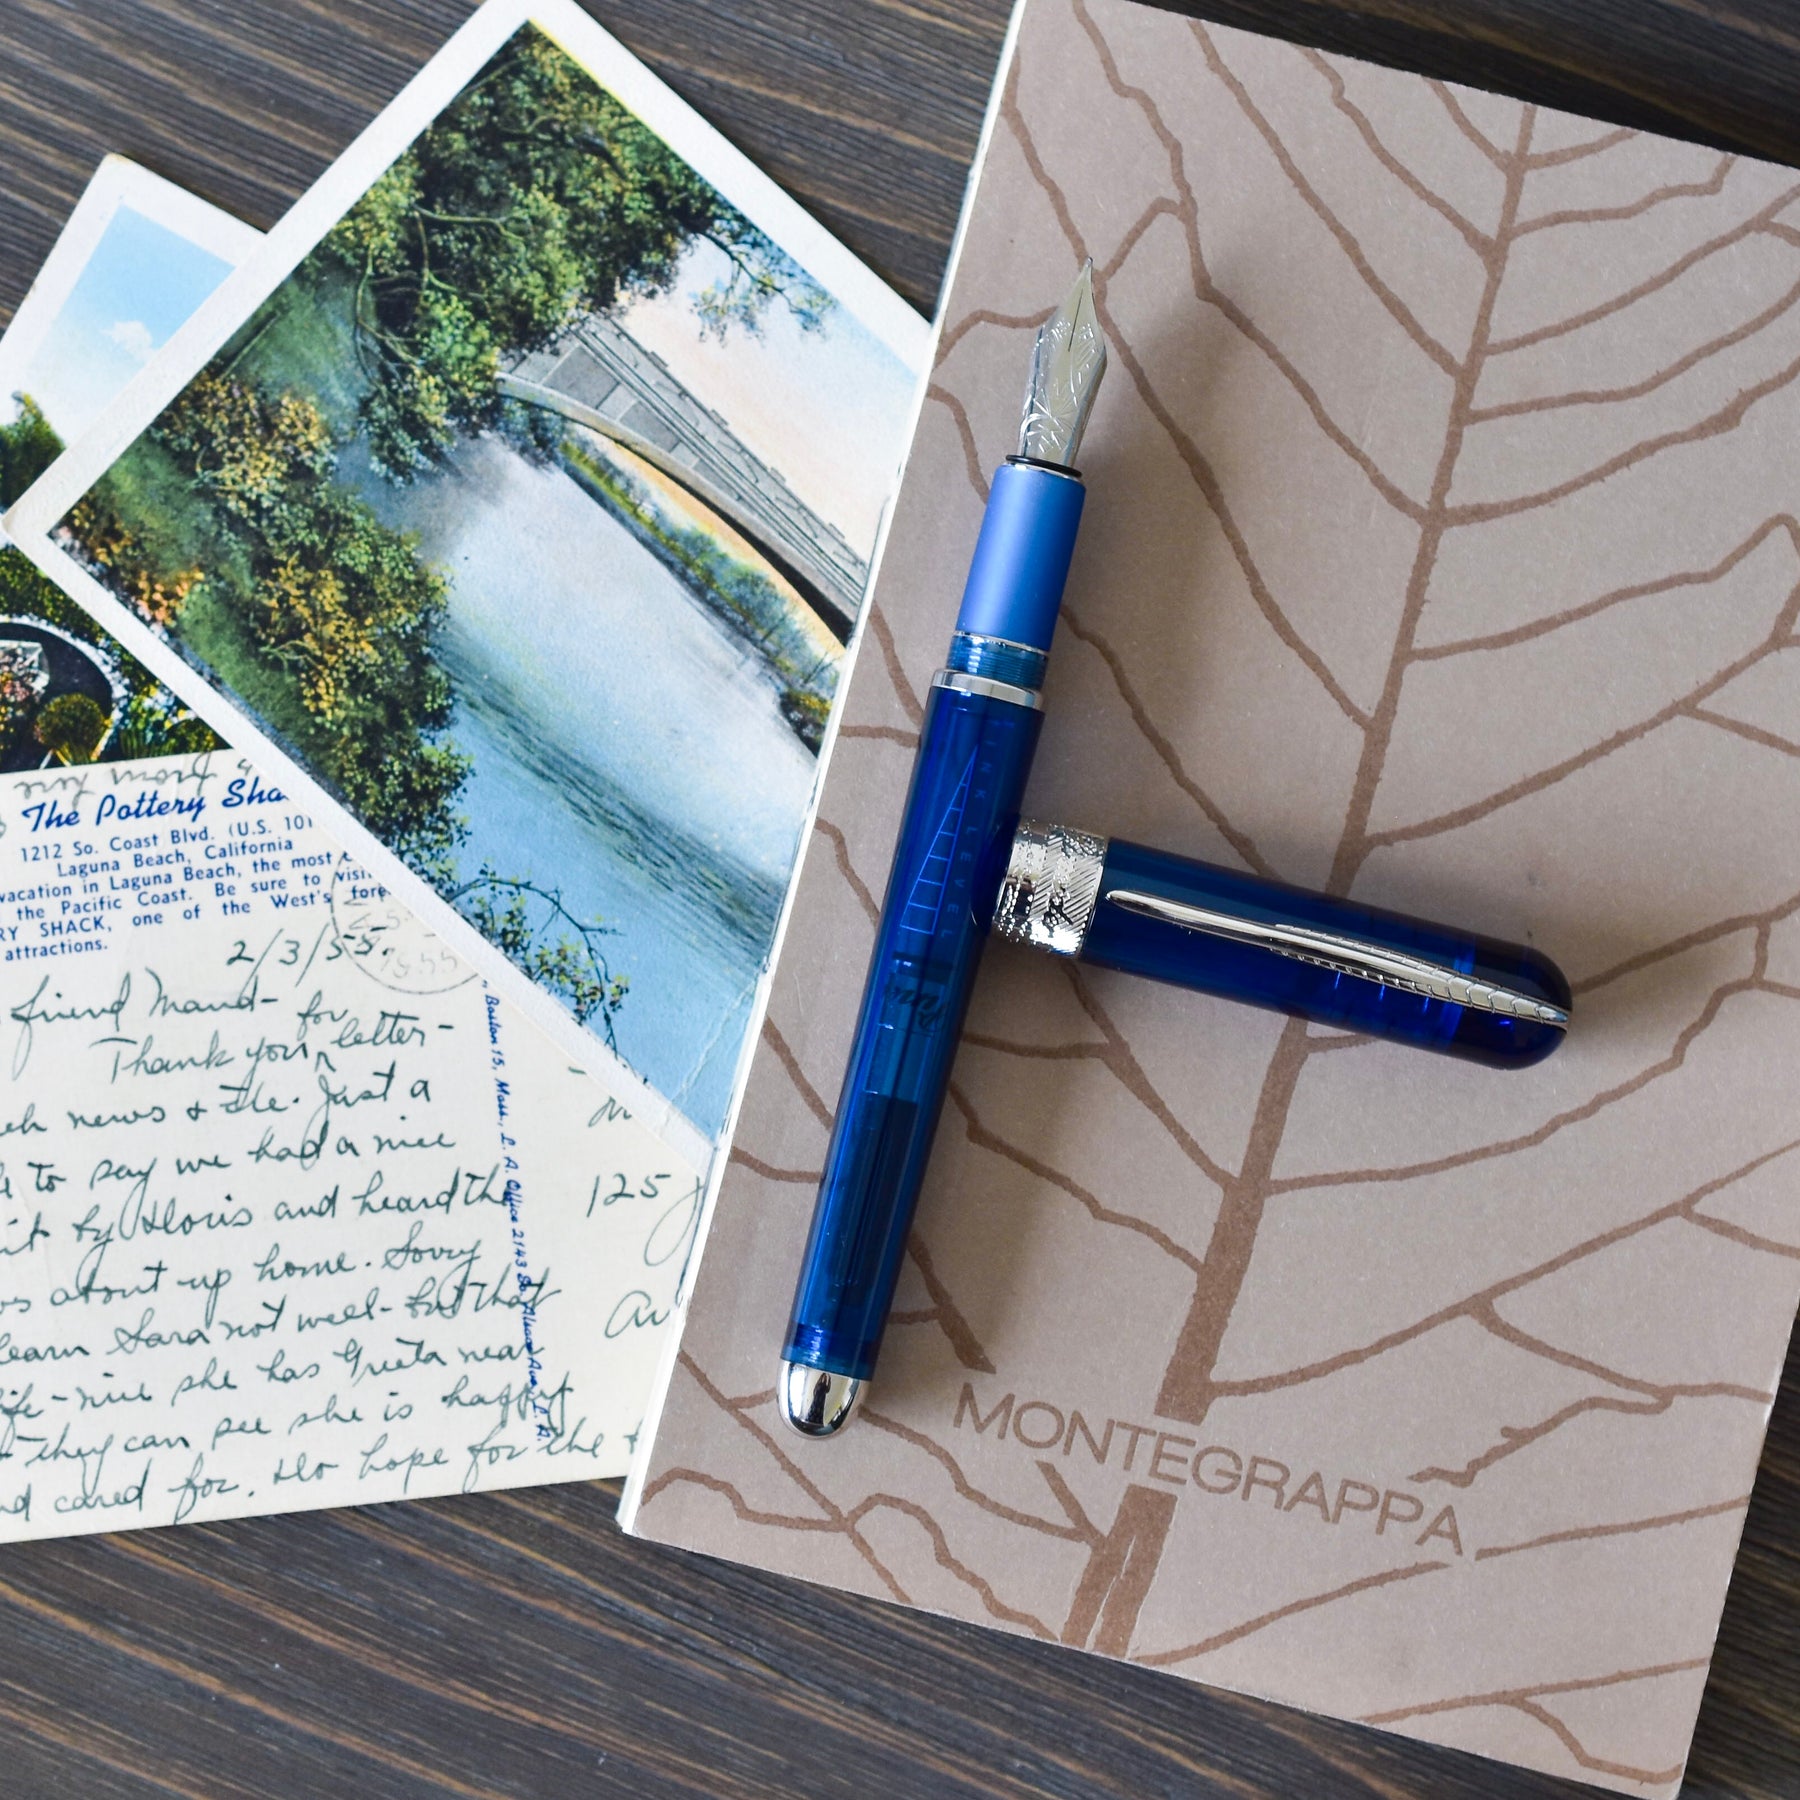 my more
The Pottery Sha
1212 So. Coast Blvd. (U.S. 101
Laguna Beach, California
vacation in Laguna Beach, the most
the Pacific Coast. Be sure to visit
RY SHACK, one of the West's fore
attractions.
2/3/55.
1955
friend Maud-
Thank you for letter-
news & etc. Just a
to say we had a nice
by Doris and heard the
about up home. Sorry
learn Sara not well- but that
nice she has Greeta near
they can see she is happy
cared for. Do hope for the
Boston 15, Mass., L. A. Office 2143 So. Alsace Ave., L. A.
125
INK LEVEL
MONTEGRAPPA